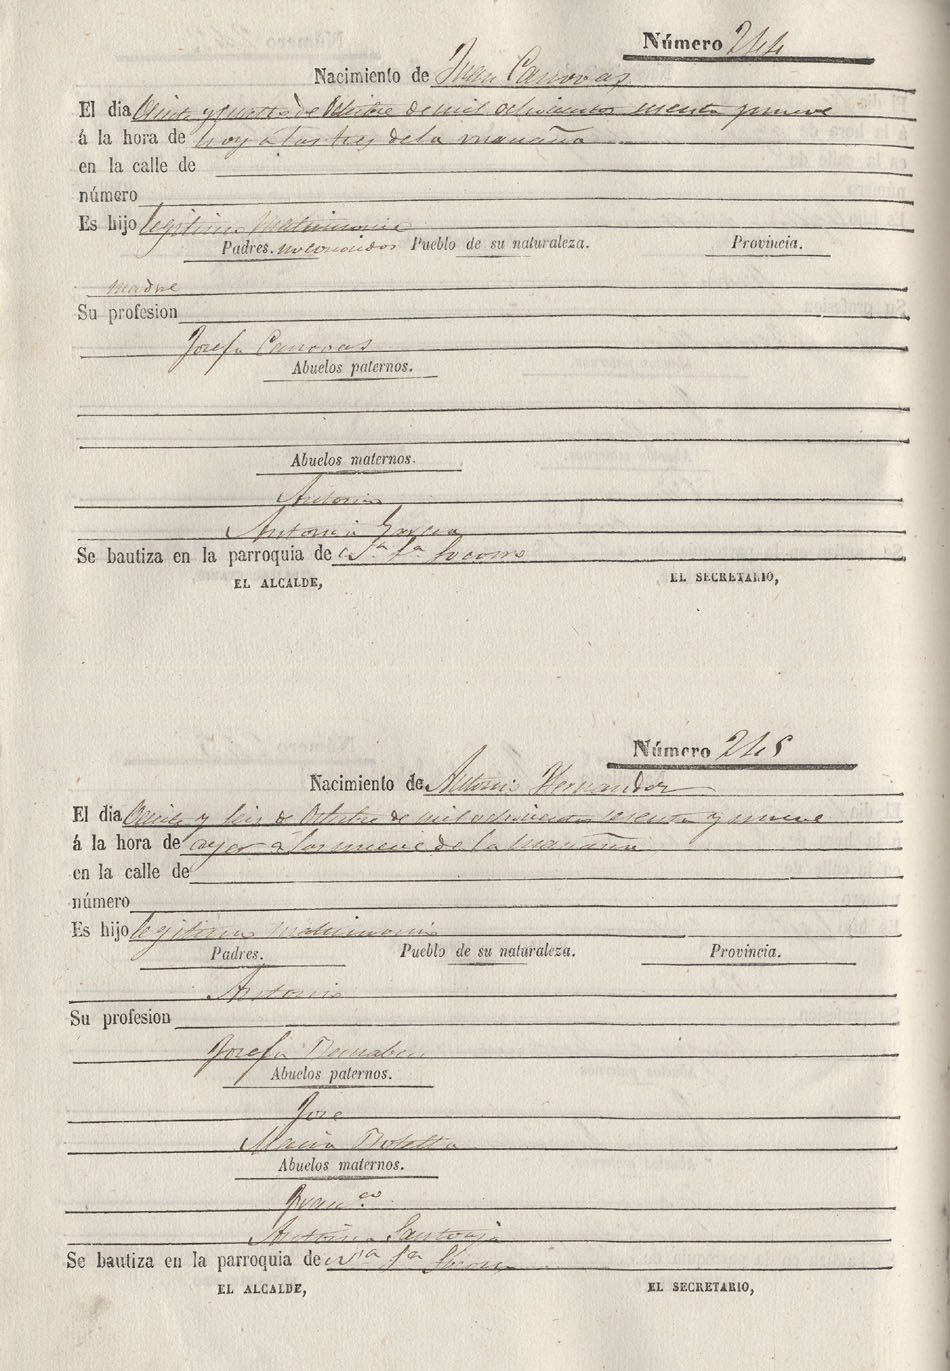 Número 244
Nacimiento de Juan Canovas
El dia Veinte y cuatro de Octubre de mil ochocientos sesenta y nueve
á la hora de hoy a las tres de la mañana
en la calle de
número
Es hijo legitimo Matrimonio
Padres. no conocidos Pueblo de su naturaleza. Provincia.
Madre
Su profesion
Josefa Canovas
Abuelos paternos.
Abuelos maternos.
Antonio
Antonia Garcia
Se bautiza en la parroquia de Nª Sª Socorro
EL ALCALDE, EL SECRETARIO,
Número 245
Nacimiento de Antonio Hernandez
El dia Veinte y seis de Octubre de mil ochocientos sesenta y nueve
á la hora de ayer a las nueve de la mañana
en la calle de
número
Es hijo legitimo matrimonio
Padres. Pueblo de su naturaleza. Provincia.
Antonio
Su profesion
Josefa Bernabeu
Abuelos paternos.
Jose
Maria
Abuelos maternos.
Franco
Antonia Santonja
Se bautiza en la parroquia de Nª Sª Socorro
EL ALCALDE, EL SECRETARIO,